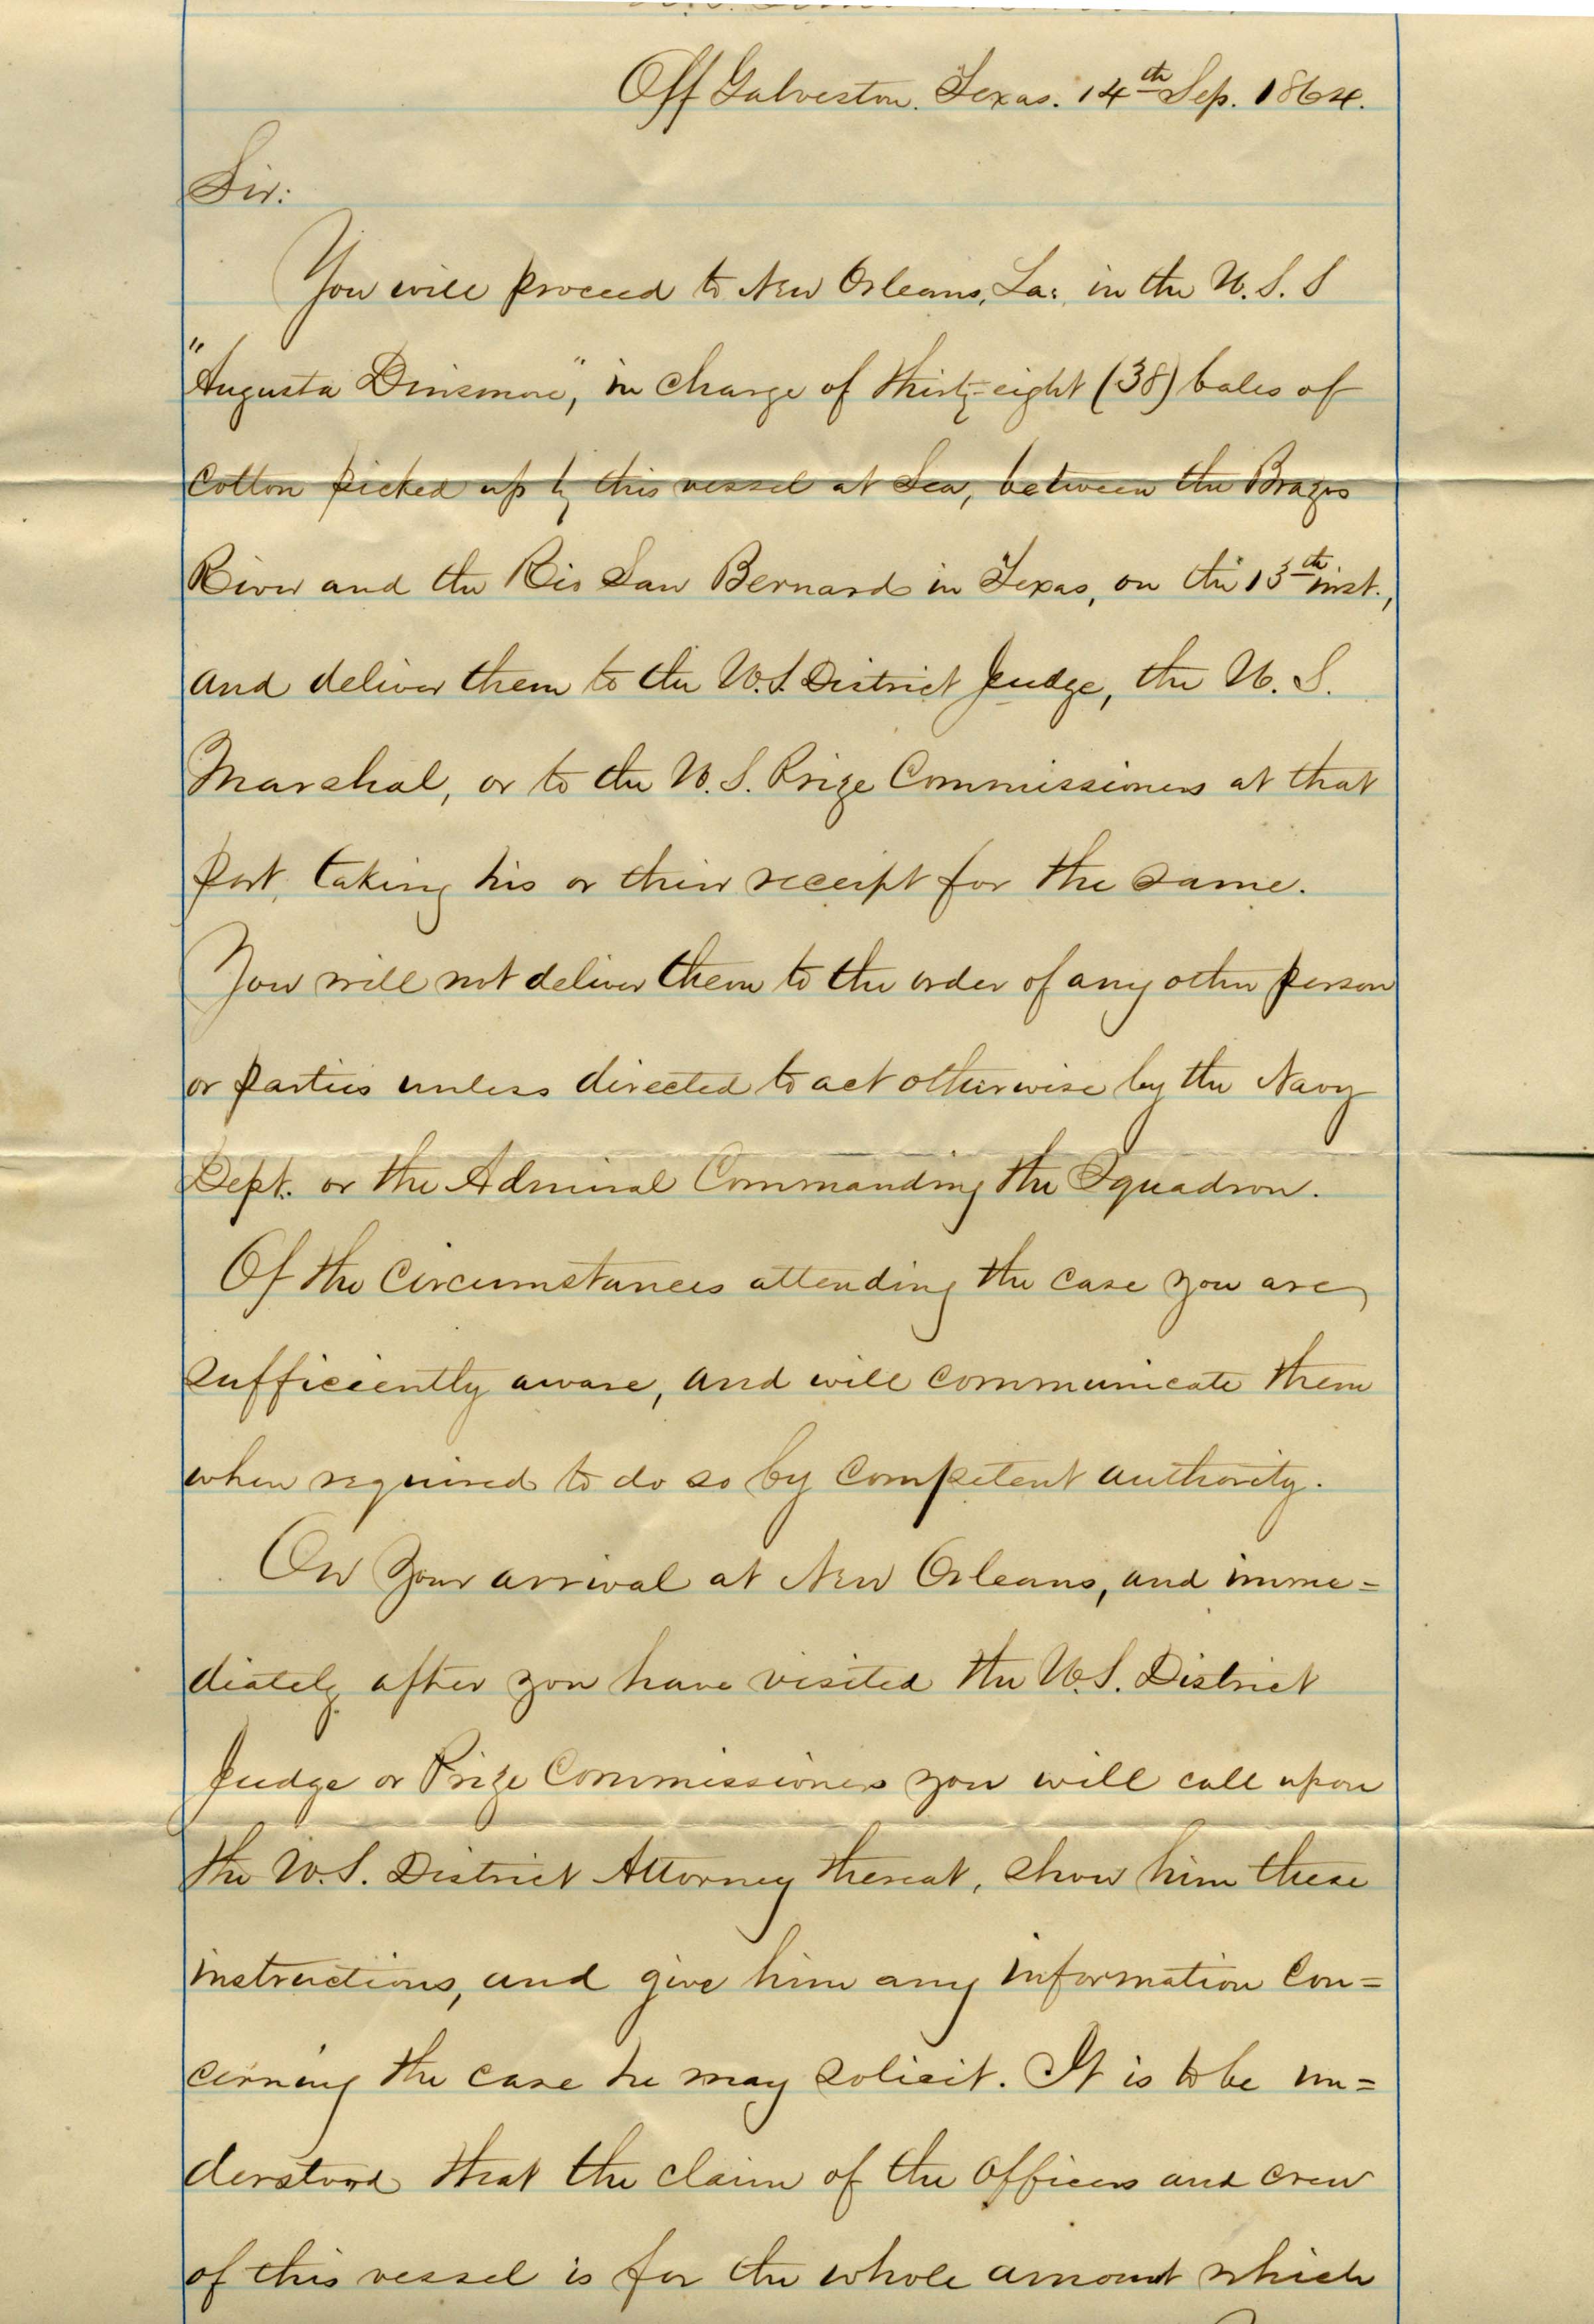 Off Galveston. Texas. 14th Sep. 1864.
Sir:
You will proceed to New Orleans, La: in the U. S. S
"Augusta Dinsmore", in charge of thirty-eight (38) bales of
Cotton picked up by this vessel at Sea, between the Brazos
River and the Rio San Bernard in Texas, on the 13th inst.,
and deliver them to the U.S. District Judge, the U. S.
Marshal, or to the U. S. Prize Commissioners at that
port, taking his or their receipt for the same.
You will not deliver them to the order of any other person
or parties unless directed to act otherwise by the Navy
Dept. or the Admiral Commanding the Squadron.
Of the Circumstances attending the case you are
sufficiently aware, and will communicate them
when required to do so by Competent authority.
On your arrival at New Orleans, and imme=
diately after you have visited the U.S. District
Judge or Prize Commissioners you will call upon
the U.S. District Attorney thereat, show him these
instructions, and give him any information Con=
cerning the case he may solicit. It is to be un=
derstood that the claim of the Officers and crew
of this vessel is for the whole amount which